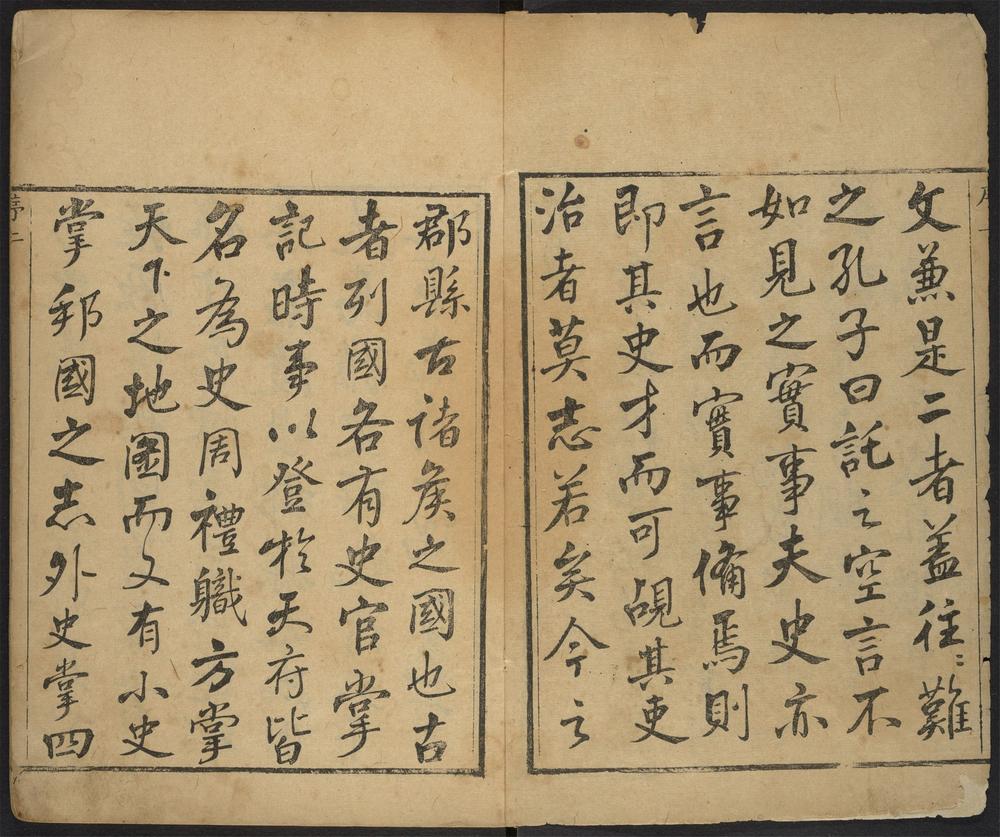 文兼是二者盖往〻難
之孔子曰託之空言不
如見之實事夫史亦
言也而實事備焉則
即其史才而可覘其吏
治者莫志若矣今之
郡縣古諸矦之國也古
者列國各有史官掌
記時事以登於天府皆
名為史周禮職方掌
天下之地圖而又有小史
掌邦國之志外史掌四
序二